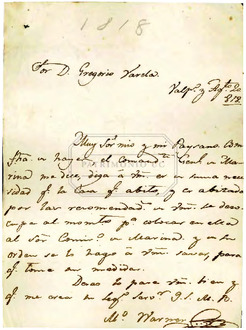 1818
Sor D. Gregorio Varela
Valpo. y Agto 20
818
Muy Sor mio y mi Paysano Com
fha a hayer el Comandte Gral a Ma
rina me dice, diga á Vm es en suma nece
sidad qe la Casa qe abito, y es abitada
por las recomendad a Vm se deso
cupe al momto pa colocar en ella
al Sor Comro a Marina y a su
orden se lo hago á Vm saver, para
qe tome sus medidas.
Deseo lo pase Vm bien y
qe me crea su
Mo. Warner